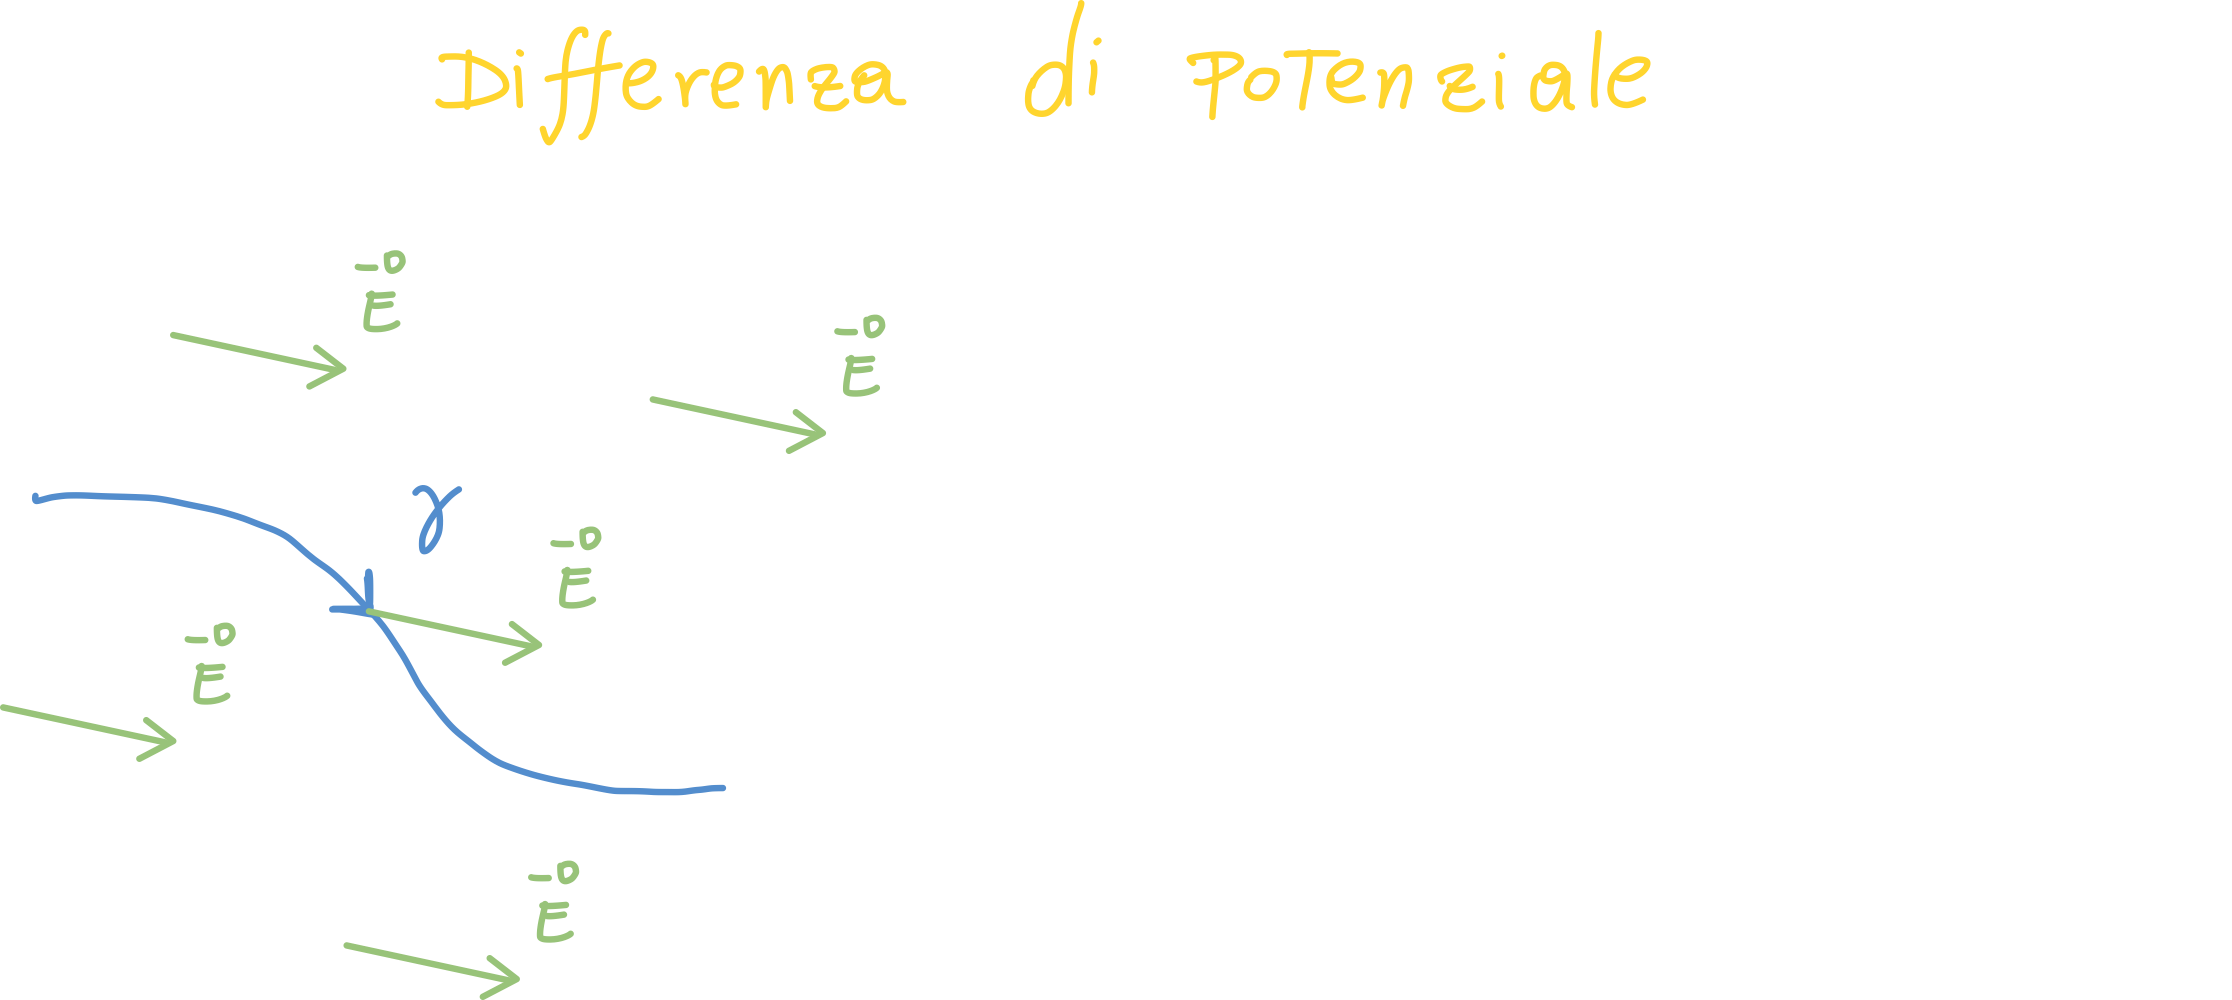 Differenza di Potenziale
E
E
γ
E
E
E